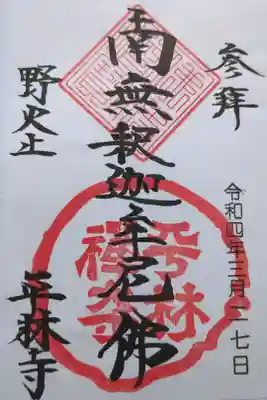 参拜
令和四年三月二七日
南無釈迦牟尼佛
野火止
平林寺
平林
禅寺